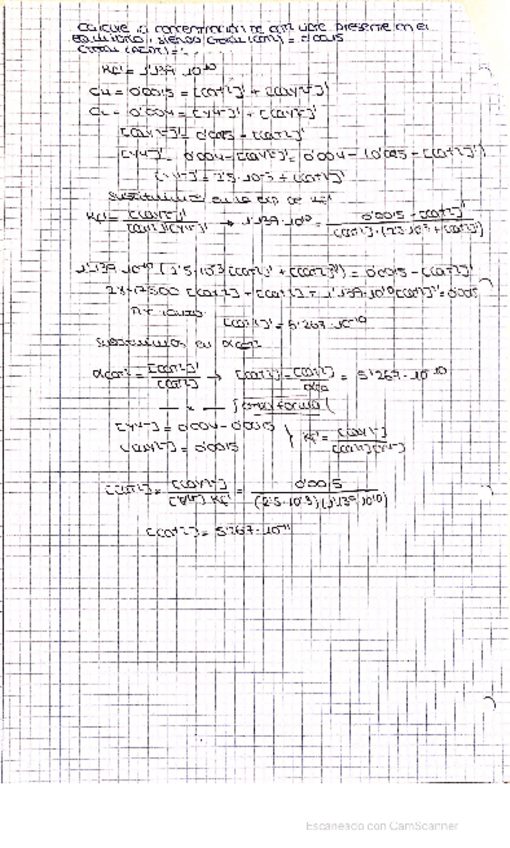 Calcule la concentración de Ca+2 libre presente en el
equilibrio, siendo Ctotal (Ca+2) = 0'0015
Ctotal
Kf' = 1'139·10^10
CM = 0'0015 = [Ca+2]' + [CaY2-]'
CL = 0'004 = [Y4-]' + [CaY2-]'
[CaY2-]' = 0'0015 - [Ca+2]'
[Y4-]' = 0'004 - [CaY2-]' = 0'004 - (0'0015 - [Ca+2]')
[Y4-]' = 2'5·10^-3 + [Ca+2]'
Sustituimos en la exp de Kf'
Kf' = [CaY2-]' / [Ca+2]'[Y4-]' → 1'139·10^10 = 0'0015 - [Ca+2]' / [Ca+2]'·(2'5·10^-3 + [Ca+2]')
1'139·10^10 (2'5·10^-3 [Ca+2]' + [Ca+2]'^2) = 0'0015 - [Ca+2]'
[Ca+2]' + [Ca+2]' + 1'139·10^10 [Ca+2]'^2 = 0'0015
[Ca+2]' = 5'267·10^-10
Sustituimos en αCa+2
αCa+2 = [Ca+2]' / [Ca+2] → [Ca+2] = [Ca+2]' / αCa = 5'267·10^-10
otra forma
[Y4-] = 0'004 - 0'0015 } Kf' = [CaY2-] / [Ca+2][Y4-]
[CaY2-] = 0'0015
[Ca+2] = [CaY2-] / [Y4-] Kf' = 0'0015 / (2'5·10^-3)(1'139·10^10)
[Ca+2] = 5'267·10^-11
Escaneado con CamScanner